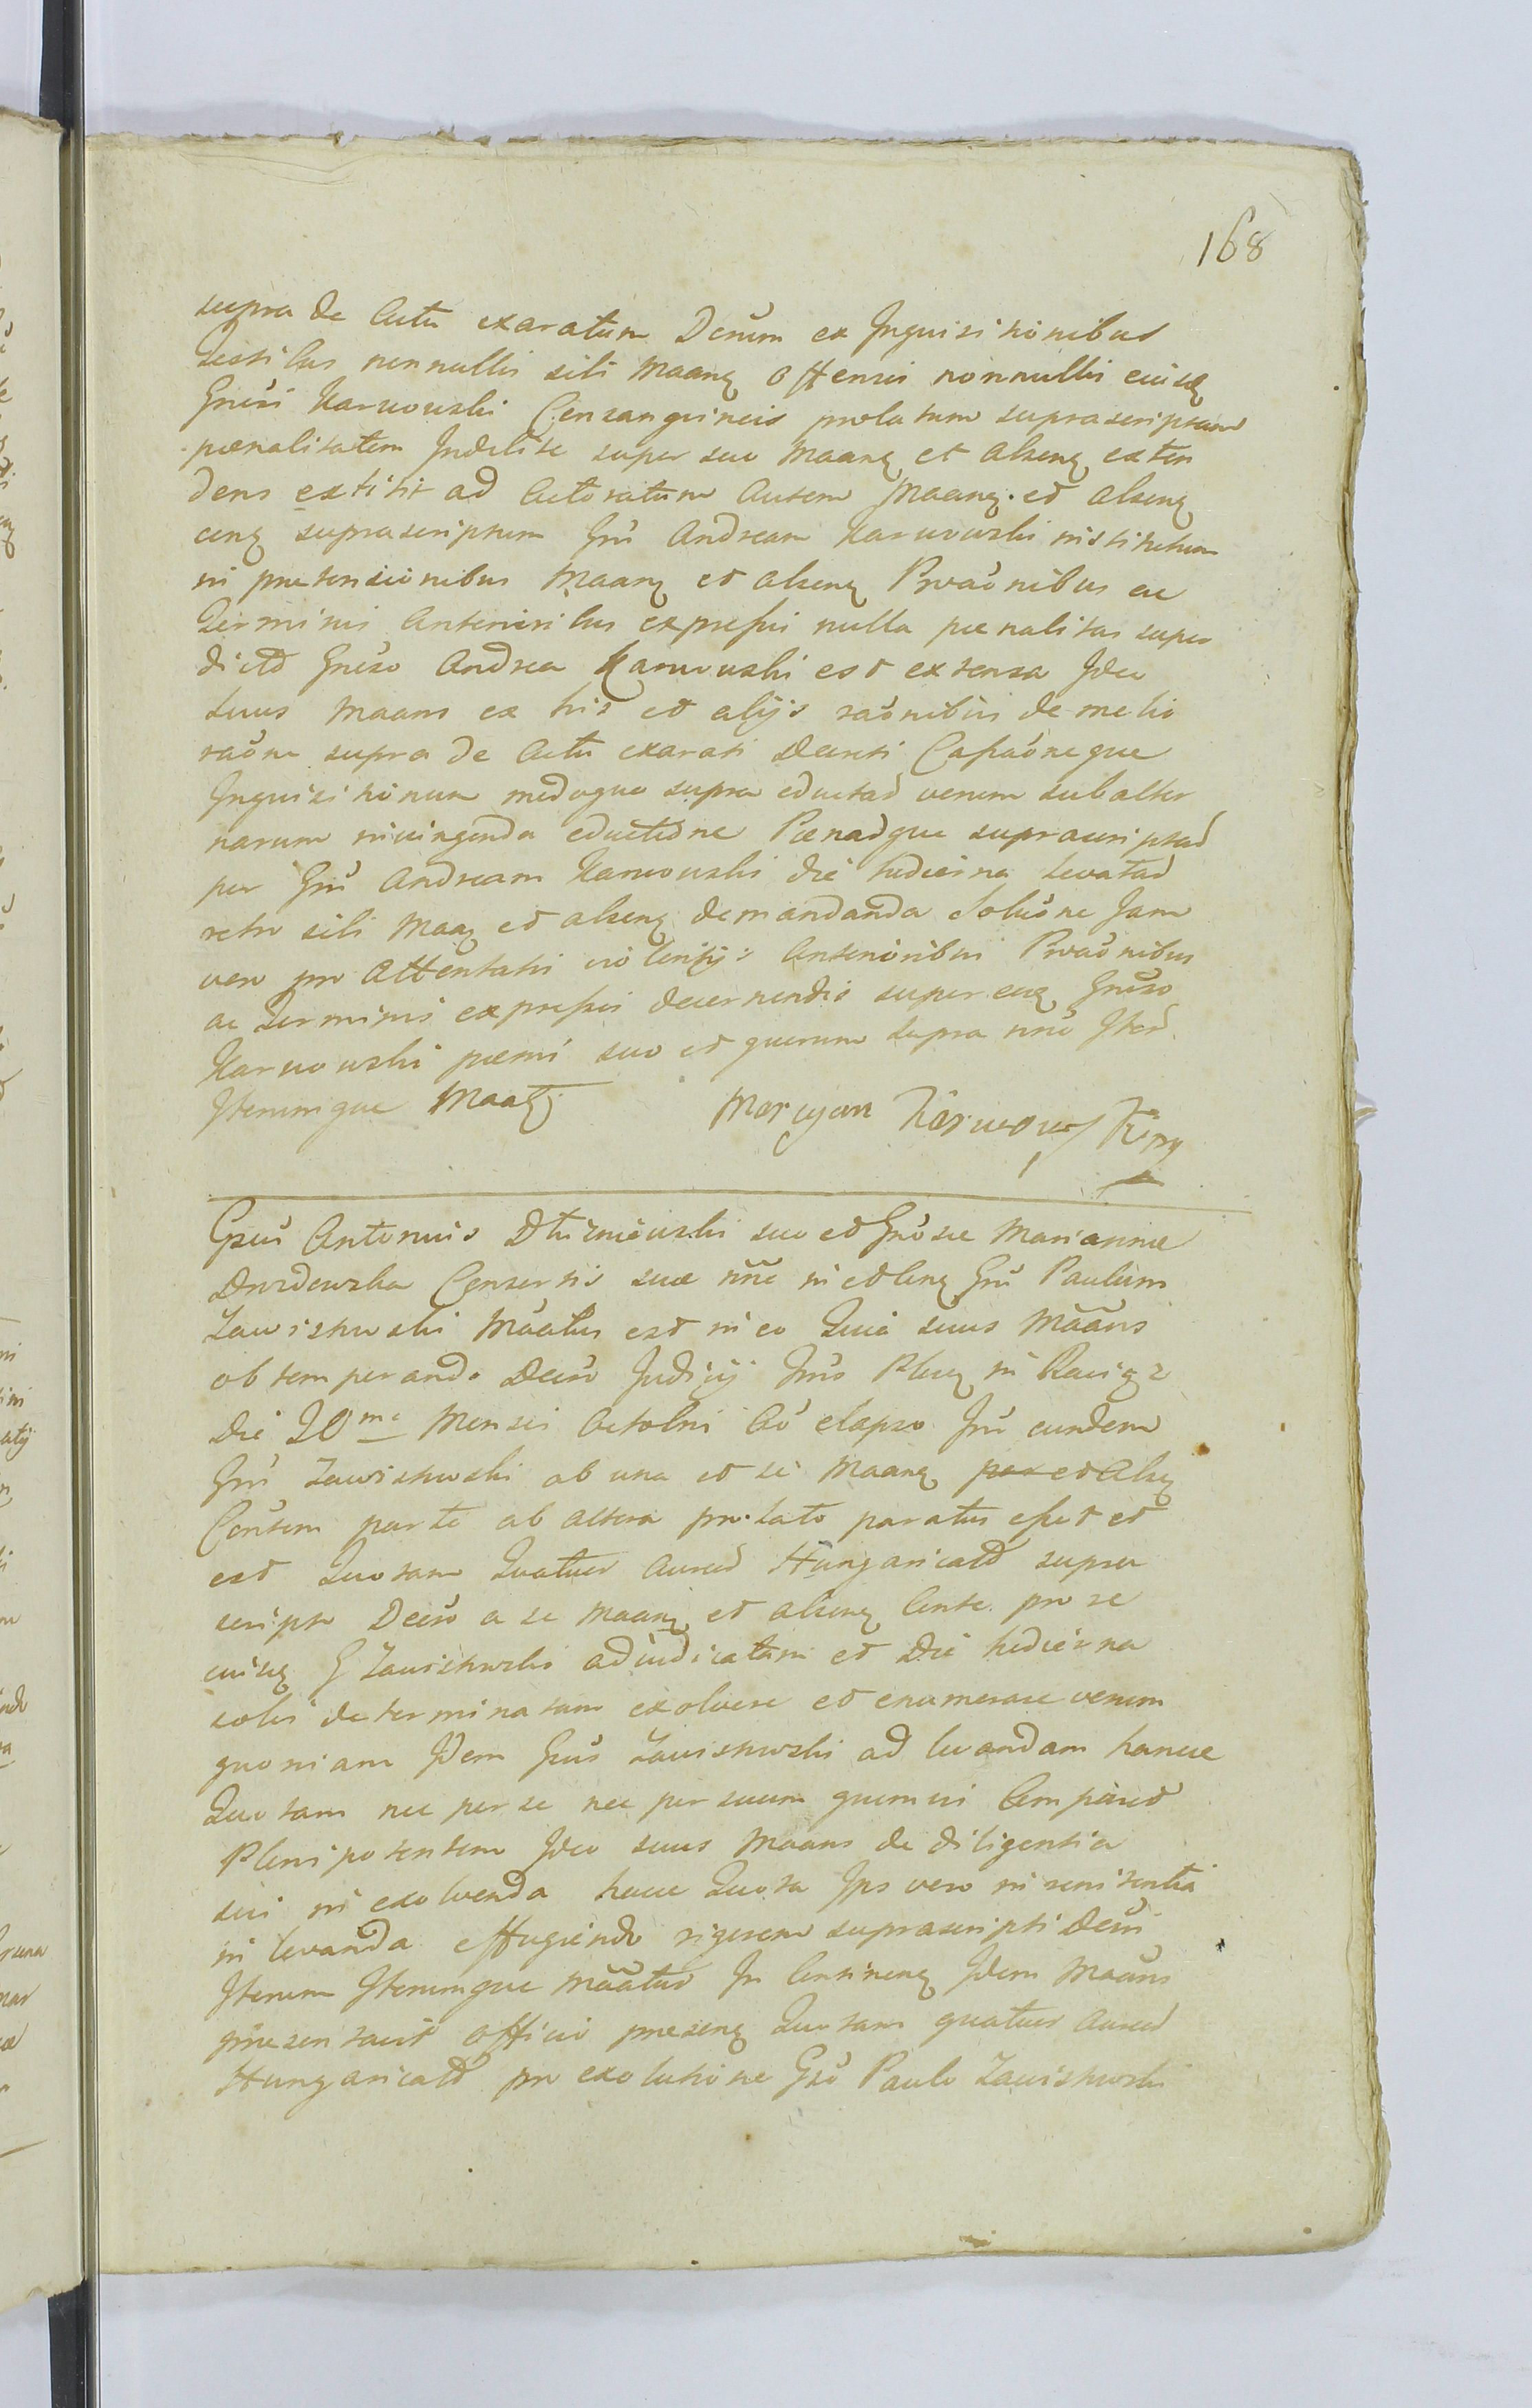 168
supra de Actu exaratum Decum ex Inquisitionibus
Testibus nonnullis sibi Maanq offensis nonnullis eiusq
Gnosi Karwowski Consanguineis prolatum suprascriptam
pœnalitatem Indebite super suo Maanq et alsenq exten
dens extitit ad Actoratum autem Maanq. et alsenq
cunq suprascriptum Gnū Andream Karwowski institutum
in prætensionibus Maanq et alsenq Proaōnibus ac
Terminis Anterioribus expressis nulla pœnalitas super
dicto Gnoso Andrea Karwowski est extensa Ideo
suus Maans ex his et alijs raōnibus de melio
raōne supra de Actu exarati Decreti Cassaōneque
Inquisitionum modoque supra eductas verum subalter
narum iniungenda eductione Pœnasque suprascriptas
per Gnū Andream Karwowski die hodierna levatas
retro sibi Maaq et alsenq demandanda solutōne Jam
vero pro attentatis violentijs Anterioribus Proaōnibus
ac Terminis expressis decernendis super eoq Gnoso
Karwowski pœnis suo et quorum supra nnē Iter
Iterumque Maatq
Maryan Karwowski Rkpą
Gsus Antonius Dłużniewski suo et Gnosæ Mariannæ
Drozdowska Consortis suæ nnē in et conq Gnū Paulum
Zawistowski Māatus est in eo Quia suus Māāns
obtemperando Decro Judicij Trris Plenq in Raigr
Die 20ma Mensis Octobris Aō elapso Inr eundem
Gnū Zawistowski ab una et se Maanq et Alsq
Consem parte ab altera prolato paratus esset et
est Quotam Quatuor Aureos Hungaricales supra
scripto Decro a se Maanq et alsenq Conte pro se
eiusq G Zawistowski adiudicatam et Die hodierna
solvi determinatam exolvere et enumerare verum
quoniam Idem Gsus Zawistowski ad levandam hancce
Quotam nec per se nec per suum quemvis Comparuit
Plenipotentem Ideo suus Maans de diligentia
sui in exolvenda hacce Quota Ips vero in renitentia
in levanda effugiendo rigorem suprascripti Decri
Iterum Iterumque Māātus In Continenq Idem Maāns
præsentavit Officio præsenq Quotam quatuor Aureos
Hungaricales pro exolutione Gsō Paulo Zawistowski